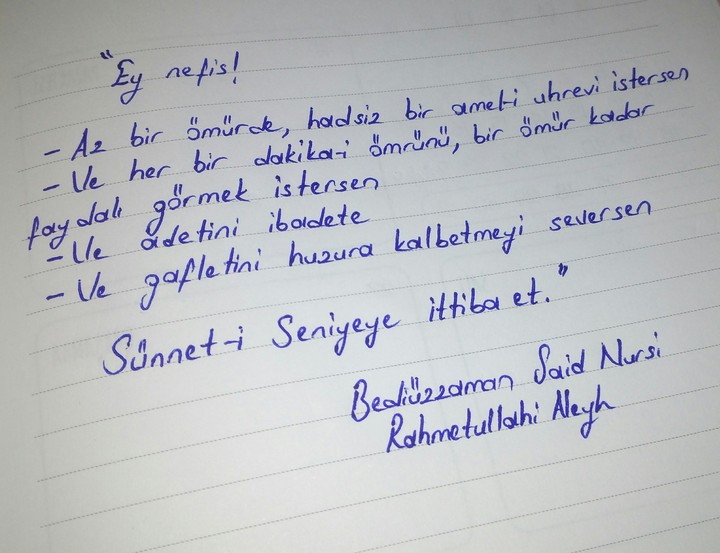 "Ey nefis!
- Az bir ömürde, hadsiz bir amel-i uhrevi istersen
- Ve her bir dakika-i ömrünü, bir ömür kadar
faydalı görmek istersen
- Ve âdetini ibadete
- Ve gafletini huzura kalbetmeyi seversen
Sünnet-i Seniyeye ittiba et."
Bediüzzaman Said Nursi
Rahmetullahi Aleyh